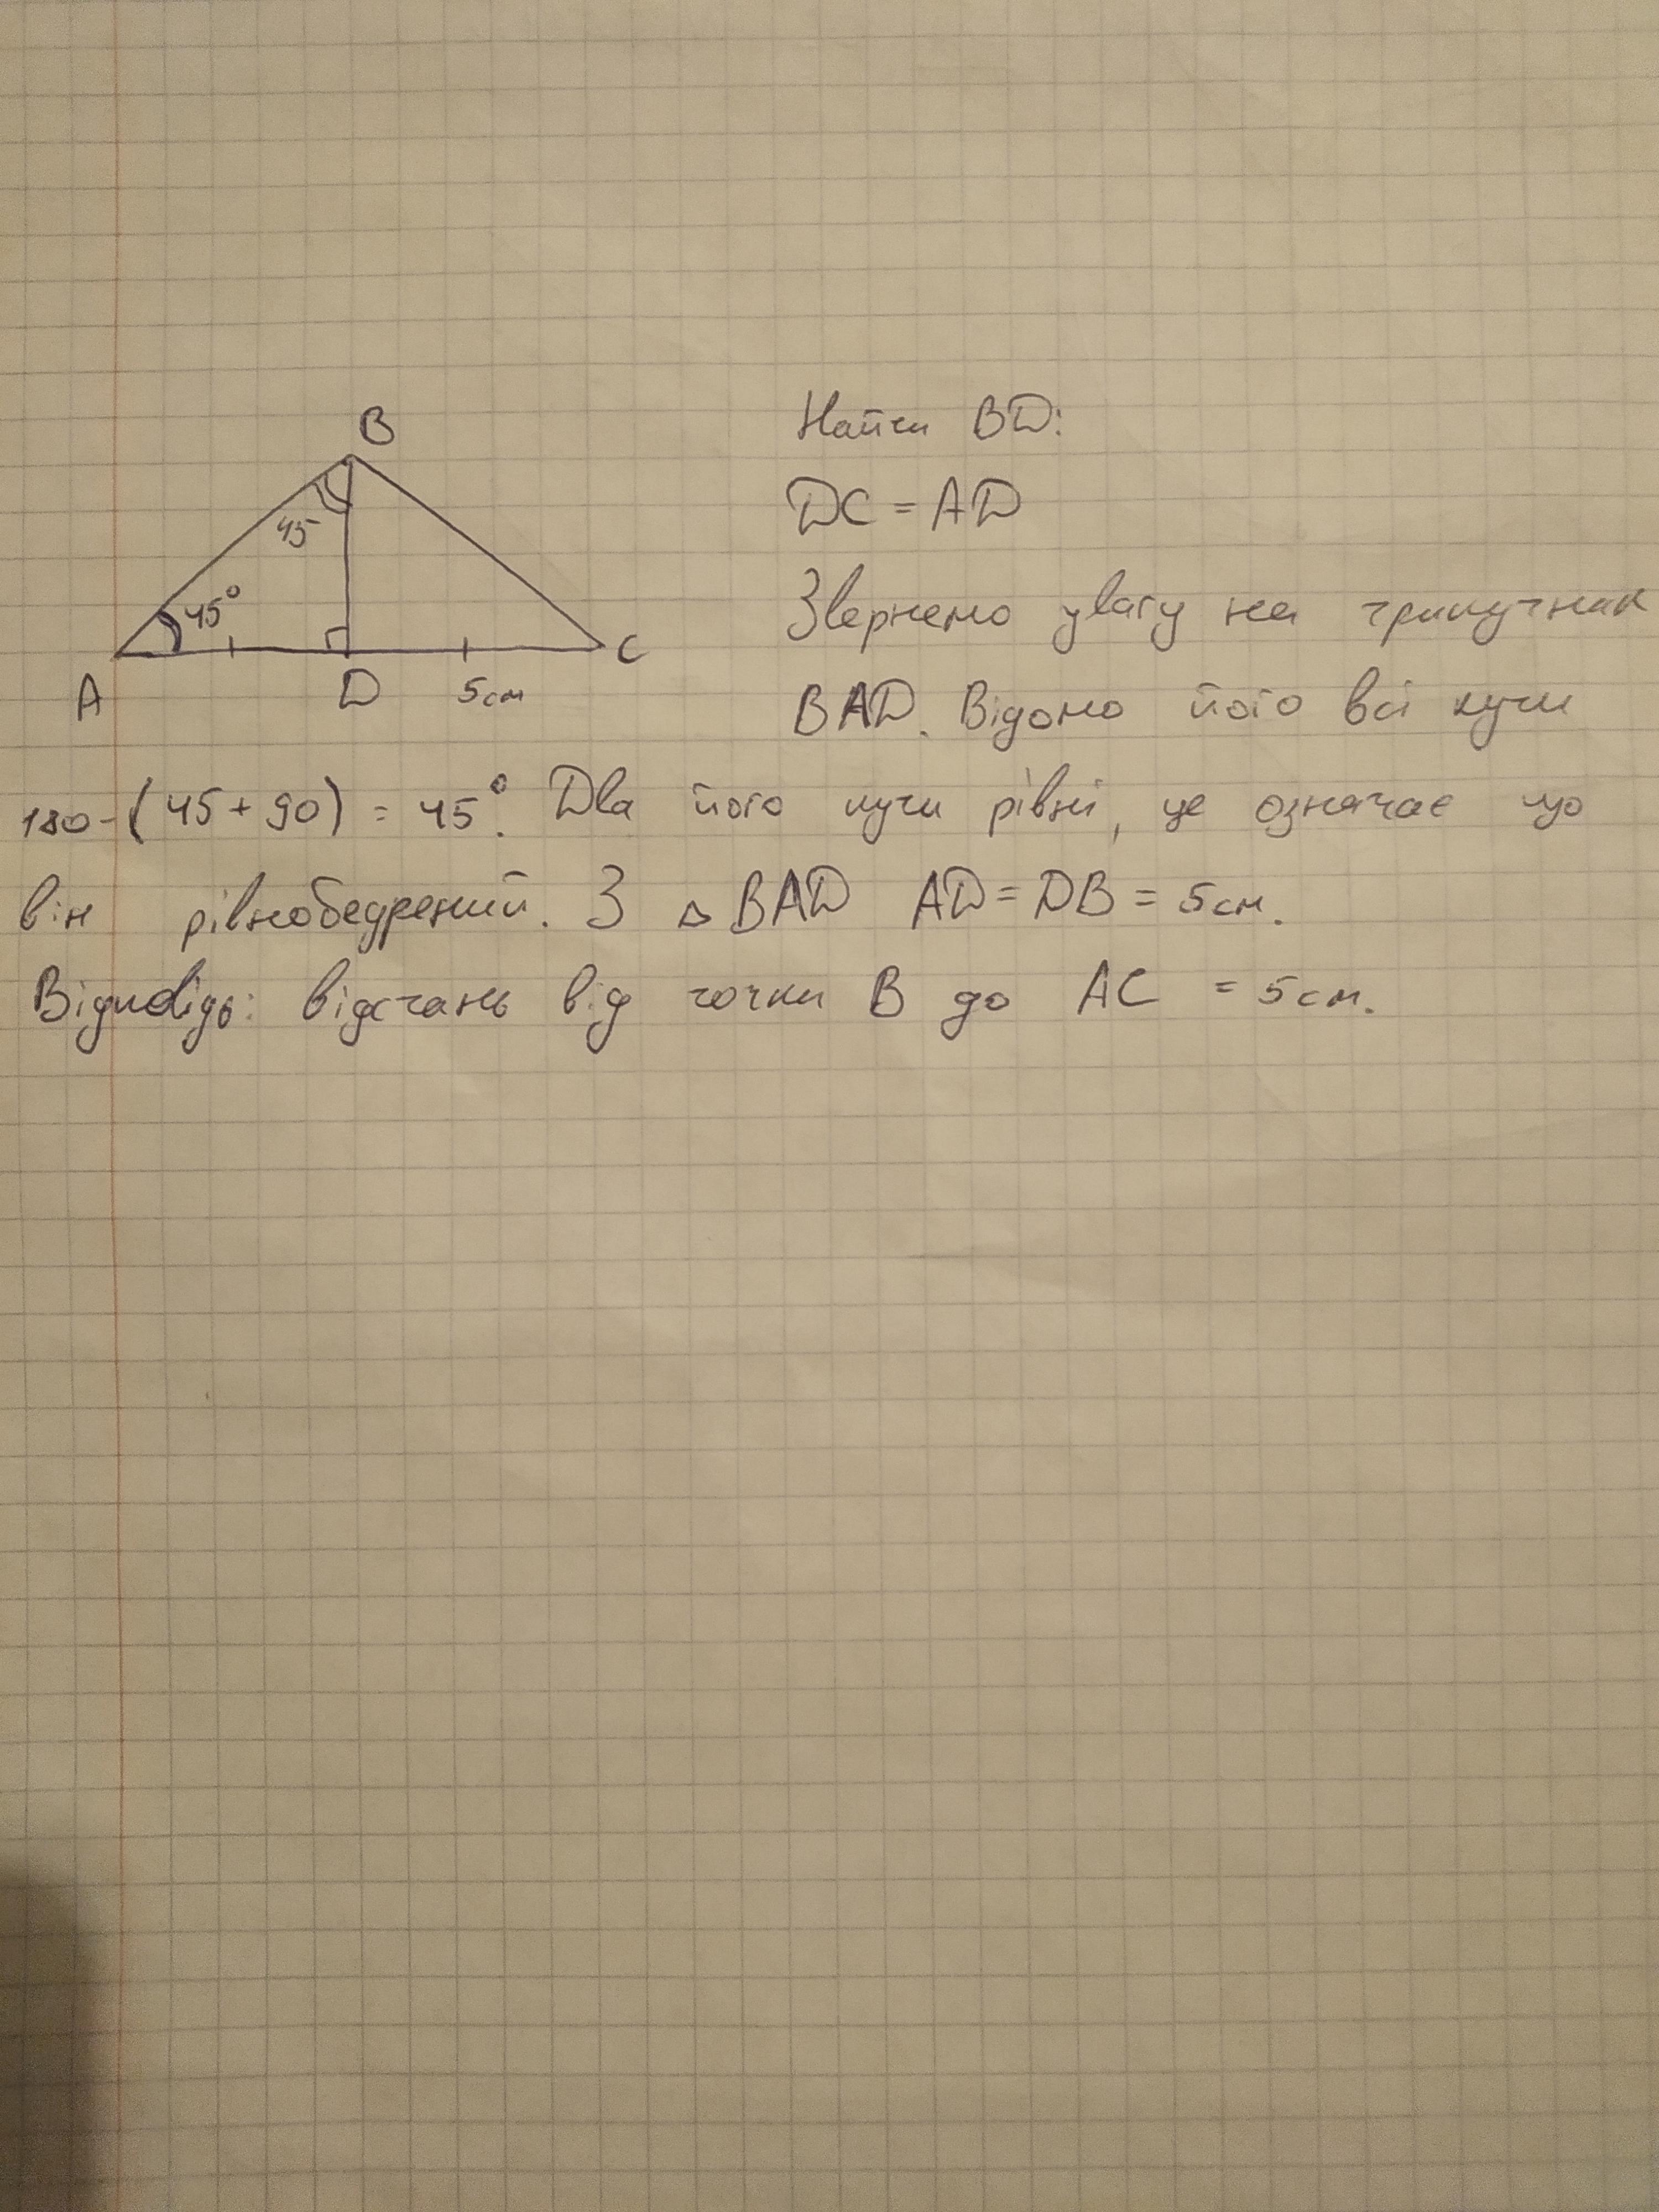 B
45
45°
A
D
5см
C
Найти BD:
DC = AD
Звернемо увагу на трикутник
BAD. Відомо його всі кути
180-(45+90) = 45°. Два його кути рівні, це означає що
він рівнобедрений. З △BAD AD = DB = 5см.
Відповідь: відстань від точки B до AC = 5см.